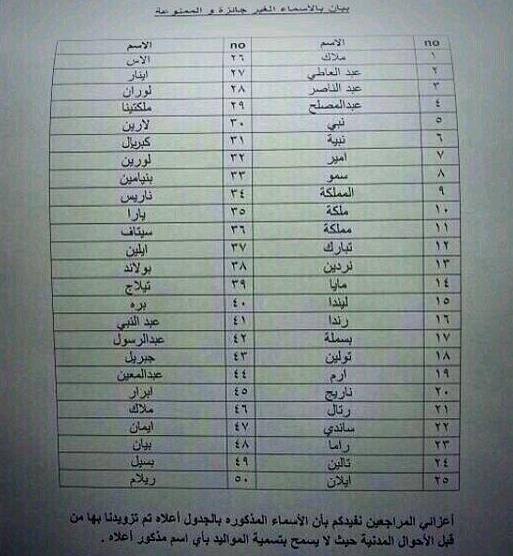 بيان بالاسماء الغير جائزة و الممنوعة
no الاسم no الاسم
١ ملاك ٢٦ الاس
٢ عبد العاطي ٢٧ اينار
٣ عبد الناصر ٢٨ لوران
٤ عبدالمصلح ٢٩ ملكتينا
٥ نبي ٣٠ لارين
٦ نبية ٣١ كبريال
٧ امير ٣٢ لورين
٨ سمو ٣٣ بنيامين
٩ المملكة ٣٤ ناريس
١٠ ملكة ٣٥ يارا
١١ مملكة ٣٦ سيتاف
١٢ تبارك ٣٧ ايلين
١٣ نردين ٣٨ بولاند
١٤ مايا ٣٩ تيلاج
١٥ ليندا ٤٠ بره
١٦ رندا ٤١ عبد النبي
١٧ بسملة ٤٢ عبدالرسول
١٨ تولين ٤٣ جبريل
١٩ ارم ٤٤ عبدالمعين
٢٠ ناريج ٤٥ ابرار
٢١ رتال ٤٦ ملاك
٢٢ ساندي ٤٧ ايمان
٢٣ راما ٤٨ بيان
٢٤ تالين ٤٩ بسيل
٢٥ ايلان ٥٠ ريلام
أعزائي المراجعين نفيدكم بأن الأسماء المذكوره بالجدول أعلاه تم تزويدنا بها من
قبل الأحوال المدنية حيث لا يسمح بتسمية المواليد بأي اسم مذكور أعلاه .